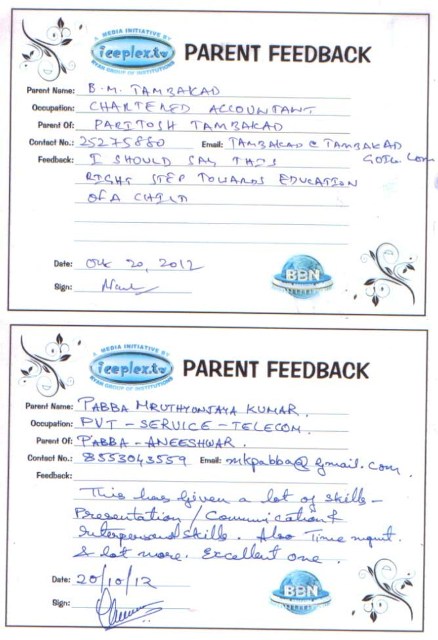 A MEDIA INITIATIVE BY
iceplex.tv
RYAN GROUP OF INSTITUTIONS
PARENT FEEDBACK
Parent Name: B.M. TAMBAKAD
Occupation: CHARTERED ACCOUNTANT
Parent Of: PARITOSH TAMBAKAD
Contact No.: 25275880 Email: TAMBAKAD @ TAMBAKAD
.com
Feedback: I SHOULD SAY THIS
RIGHT STEP TOWARDS EDUCATION
OF A CHILD
Date: Oct 20, 2012
Sign:
BBN
A MEDIA INITIATIVE BY
iceplex.tv
RYAN GROUP OF INSTITUTIONS
PARENT FEEDBACK
Parent Name: PABBA MRUTHYONJAYA KUMAR.
Occupation: PVT - SERVICE - TELECOM.
Parent Of: PABBA - ANEESHWAR.
Contact No.: 8553043559 Email: mkpabba@gmail.com.
Feedback:
This has given a lot of skills -
Presentation / Communication &
Interpersonal skills. Also Time mgmt.
& lot more. Excellent one.
Date: 20/10/12
Sign:
BBN